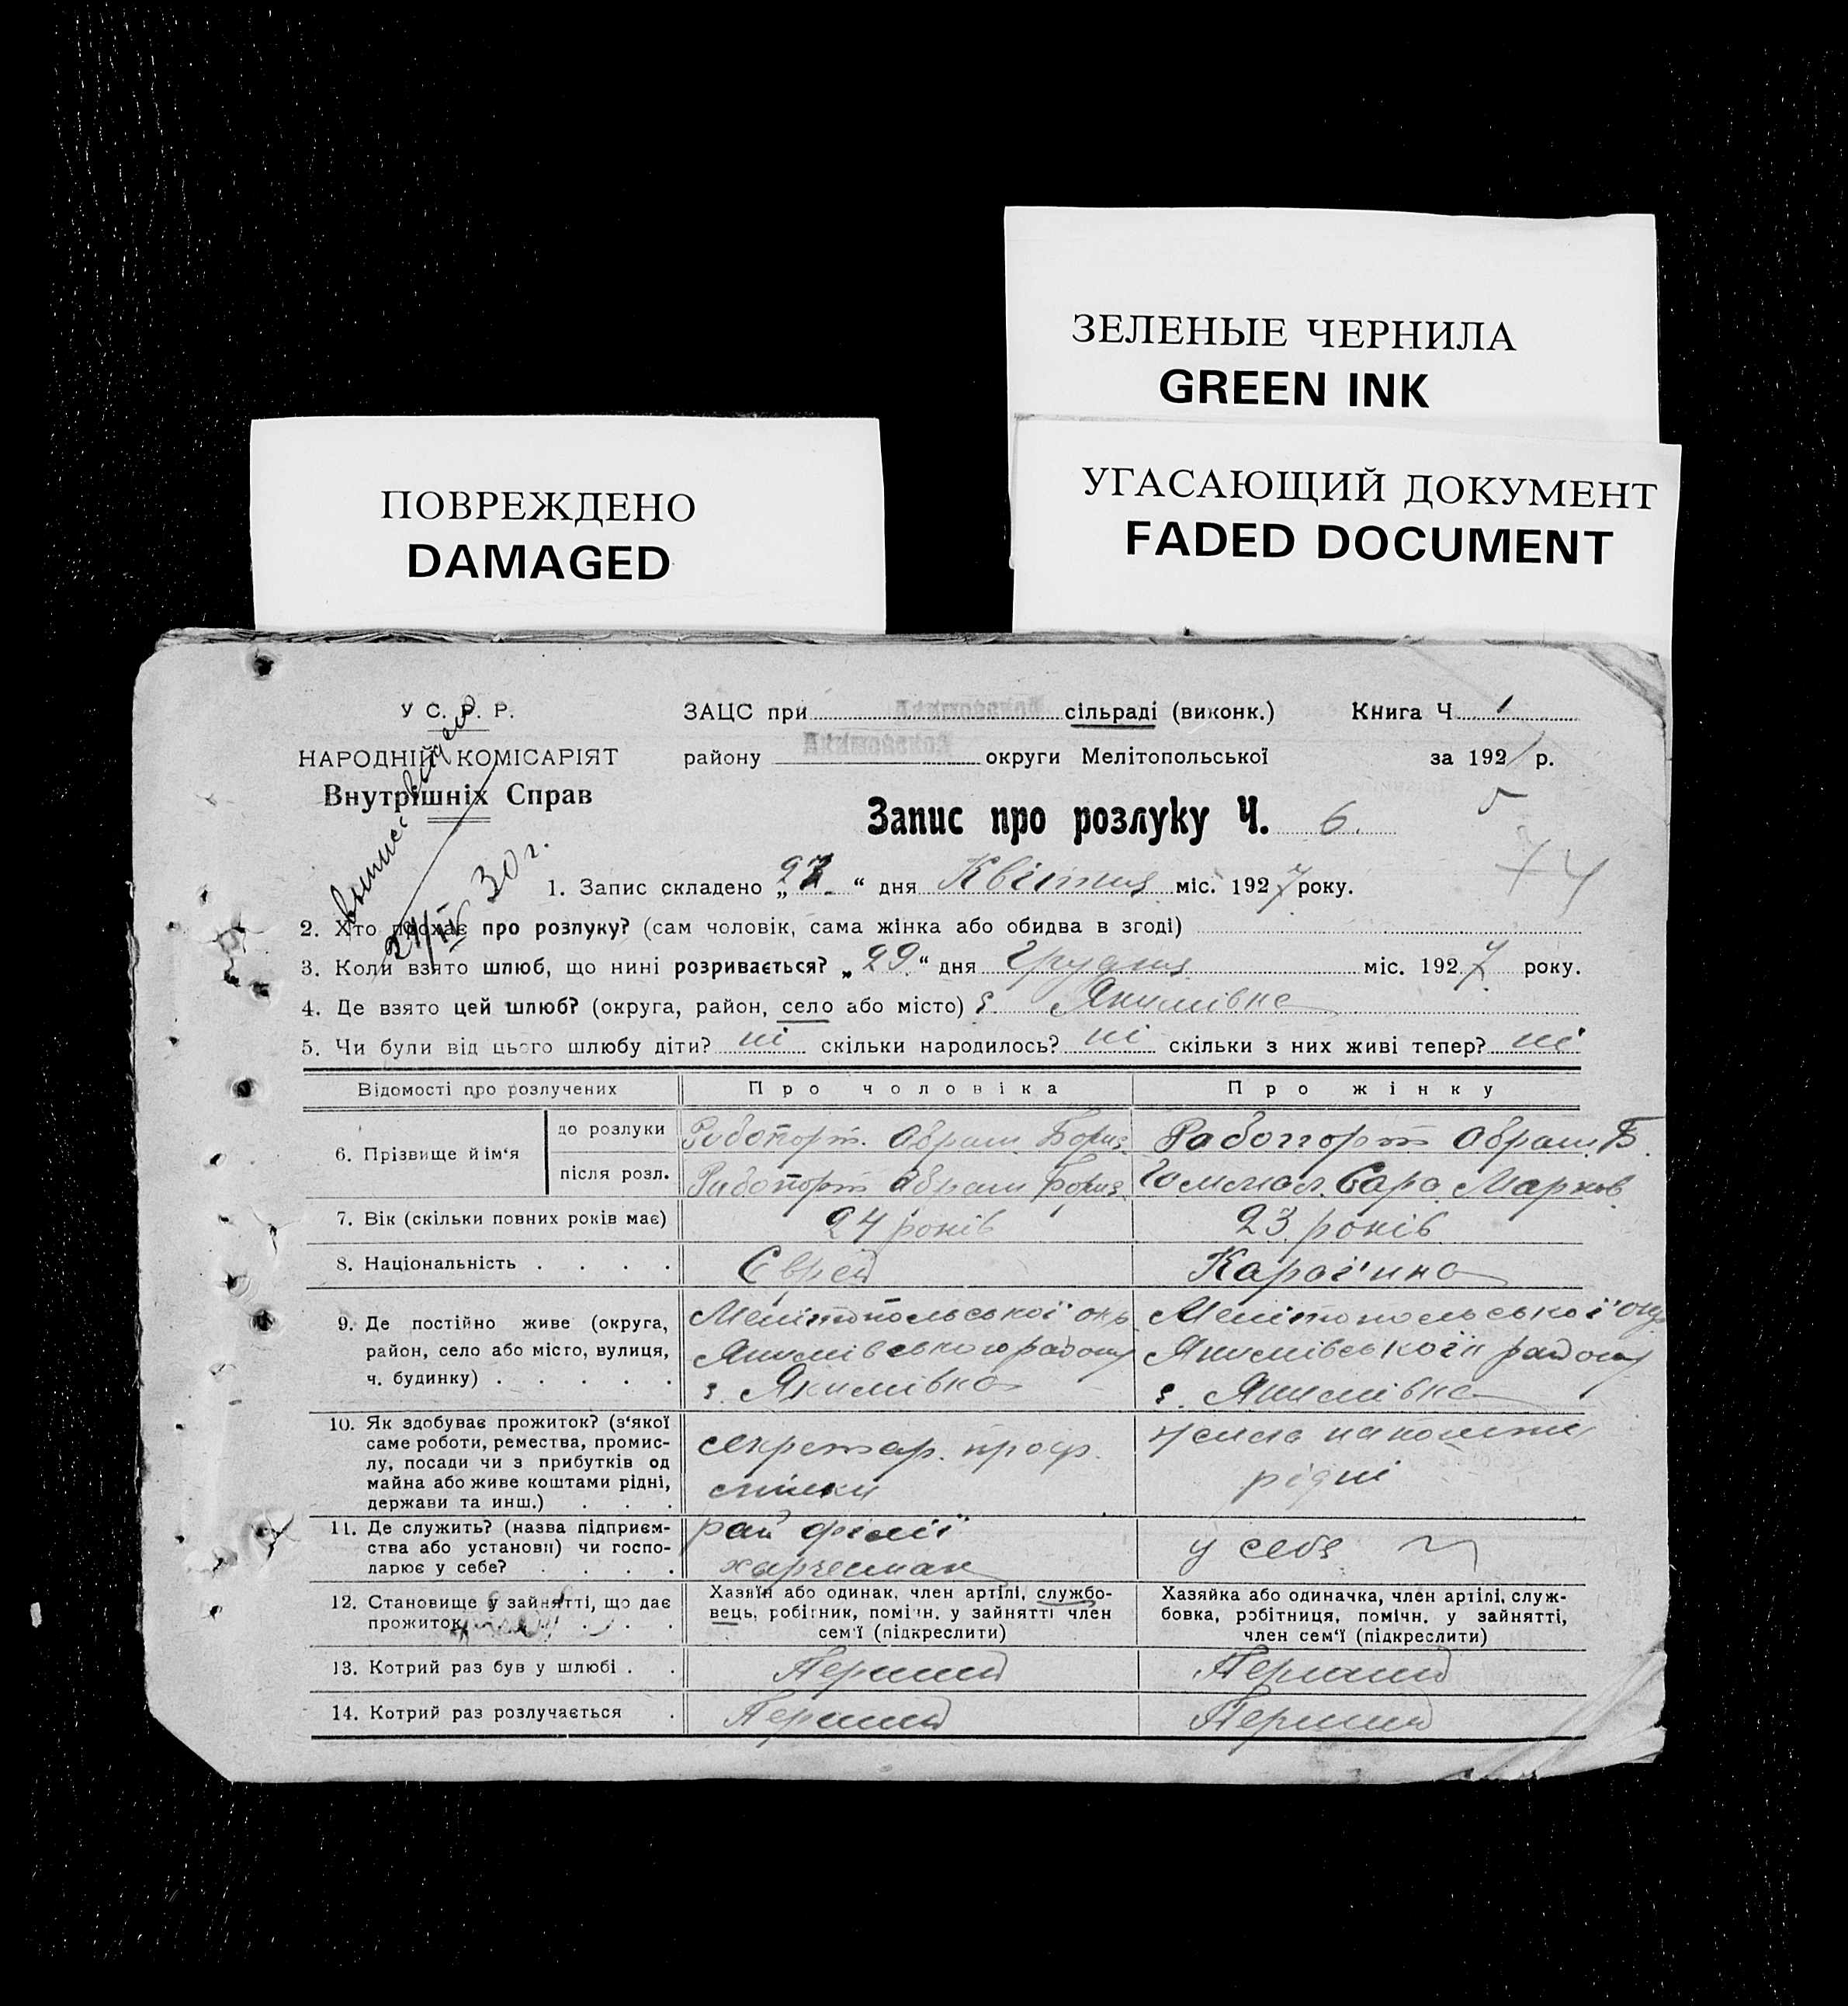 ЗЕЛЕНЫЕ ЧЕРНИЛА
GREEN INK
УГАСАЮЩИЙ ДОКУМЕНТ
FADED DOCUMENT
ПОВРЕЖДЕНО
DAMAGED
У С. Р. Р.
НАРОДНІЙ КОМІСАРІЯТ
Внутрішніх Справ
30 г.
ЗАЦС при сільраді (виконк.) Книга Ч 1
району Акимовской округи Мелітопольської за 192 р.
Запис про розлуку Ч. 6.
74
1. Запис складено „ “ дня Квітня міс. 1927 року.
2. Хто прохає про розлуку? (сам чоловік, сама жінка або обидва в згоді)
3. Коли взято шлюб, що нині розривається? „29“ дня Грудня міс. 192 року.
4. Де взято цей шлюб? (округа, район, село або місто) с. Якимівка
5. Чи були від цього шлюбу діти? ні скільки народилось? ні скільки з них живі тепер? ні
Відомості про розлучених Про чоловіка Про жінку
6. Прізвище й ім‘я
до розлуки Рабопорт Абрам Борис Рабопорт Абрам. Б.
після розл. Рабопорт Абрам Борис Сара Марков
7. Вік (скільки повних років має) 24 років 23 років
8. Національність . . . . Єврей Караї'мка
9. Де постійно живе (округа, Мелітопольської окр Мелітопольської окр
район, село або місто, вулиця, Якимівського району Якимівської району
ч. будинку) . . . . . с. Якимівка с. Якимівка
10. Як здобуває прожиток? (з‘якої
саме роботи, ремества, промис-
лу, посади чи з прибутків од
майна або живе коштами рідні,
держави та инш.) . . .
секретар. проф.
спілки
рідні
11. Де служить? (назва підприєм-
ства або установи) чи госпо-
дарює у себе? . . . .
рай філії
у себе
12. Становище у зайнятті, що дає
прожиток . . . .
Хазяїн або одинак, член артілі, службо-
вець, робітник, помічн. у зайнятті член
сем‘ї (підкреслити)
Хазяйка або одиначка, член артілі, служ-
бовка, робітниця, помічн. у зайнятті,
член сем‘ї (підкреслити)
13. Котрий раз був у шлюбі . . Перший Перший
14. Котрий раз розлучається . Перший Перший